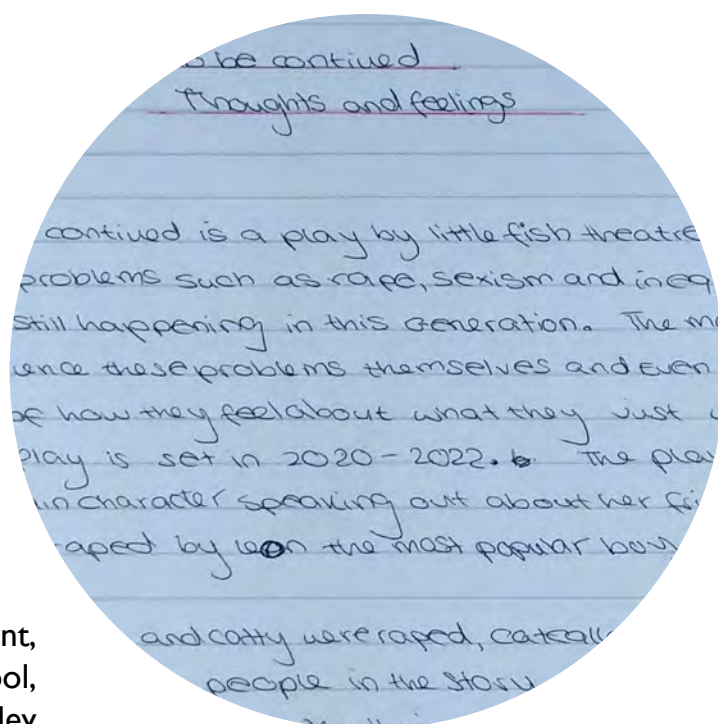 o be contiued
Thoughts and feelings
contiued is a play by little fish theatre
problems such as rape, sexism and ineq
still happening in this Generation. The m
ence these problems themselves and Even
of how they feel about what they just
play is set in 2020 - 2022. The play
in character speaking out about her fri
raped by leon the most popular boy
nt,
and catty were raped, catcall
ool,
people in the story
ley